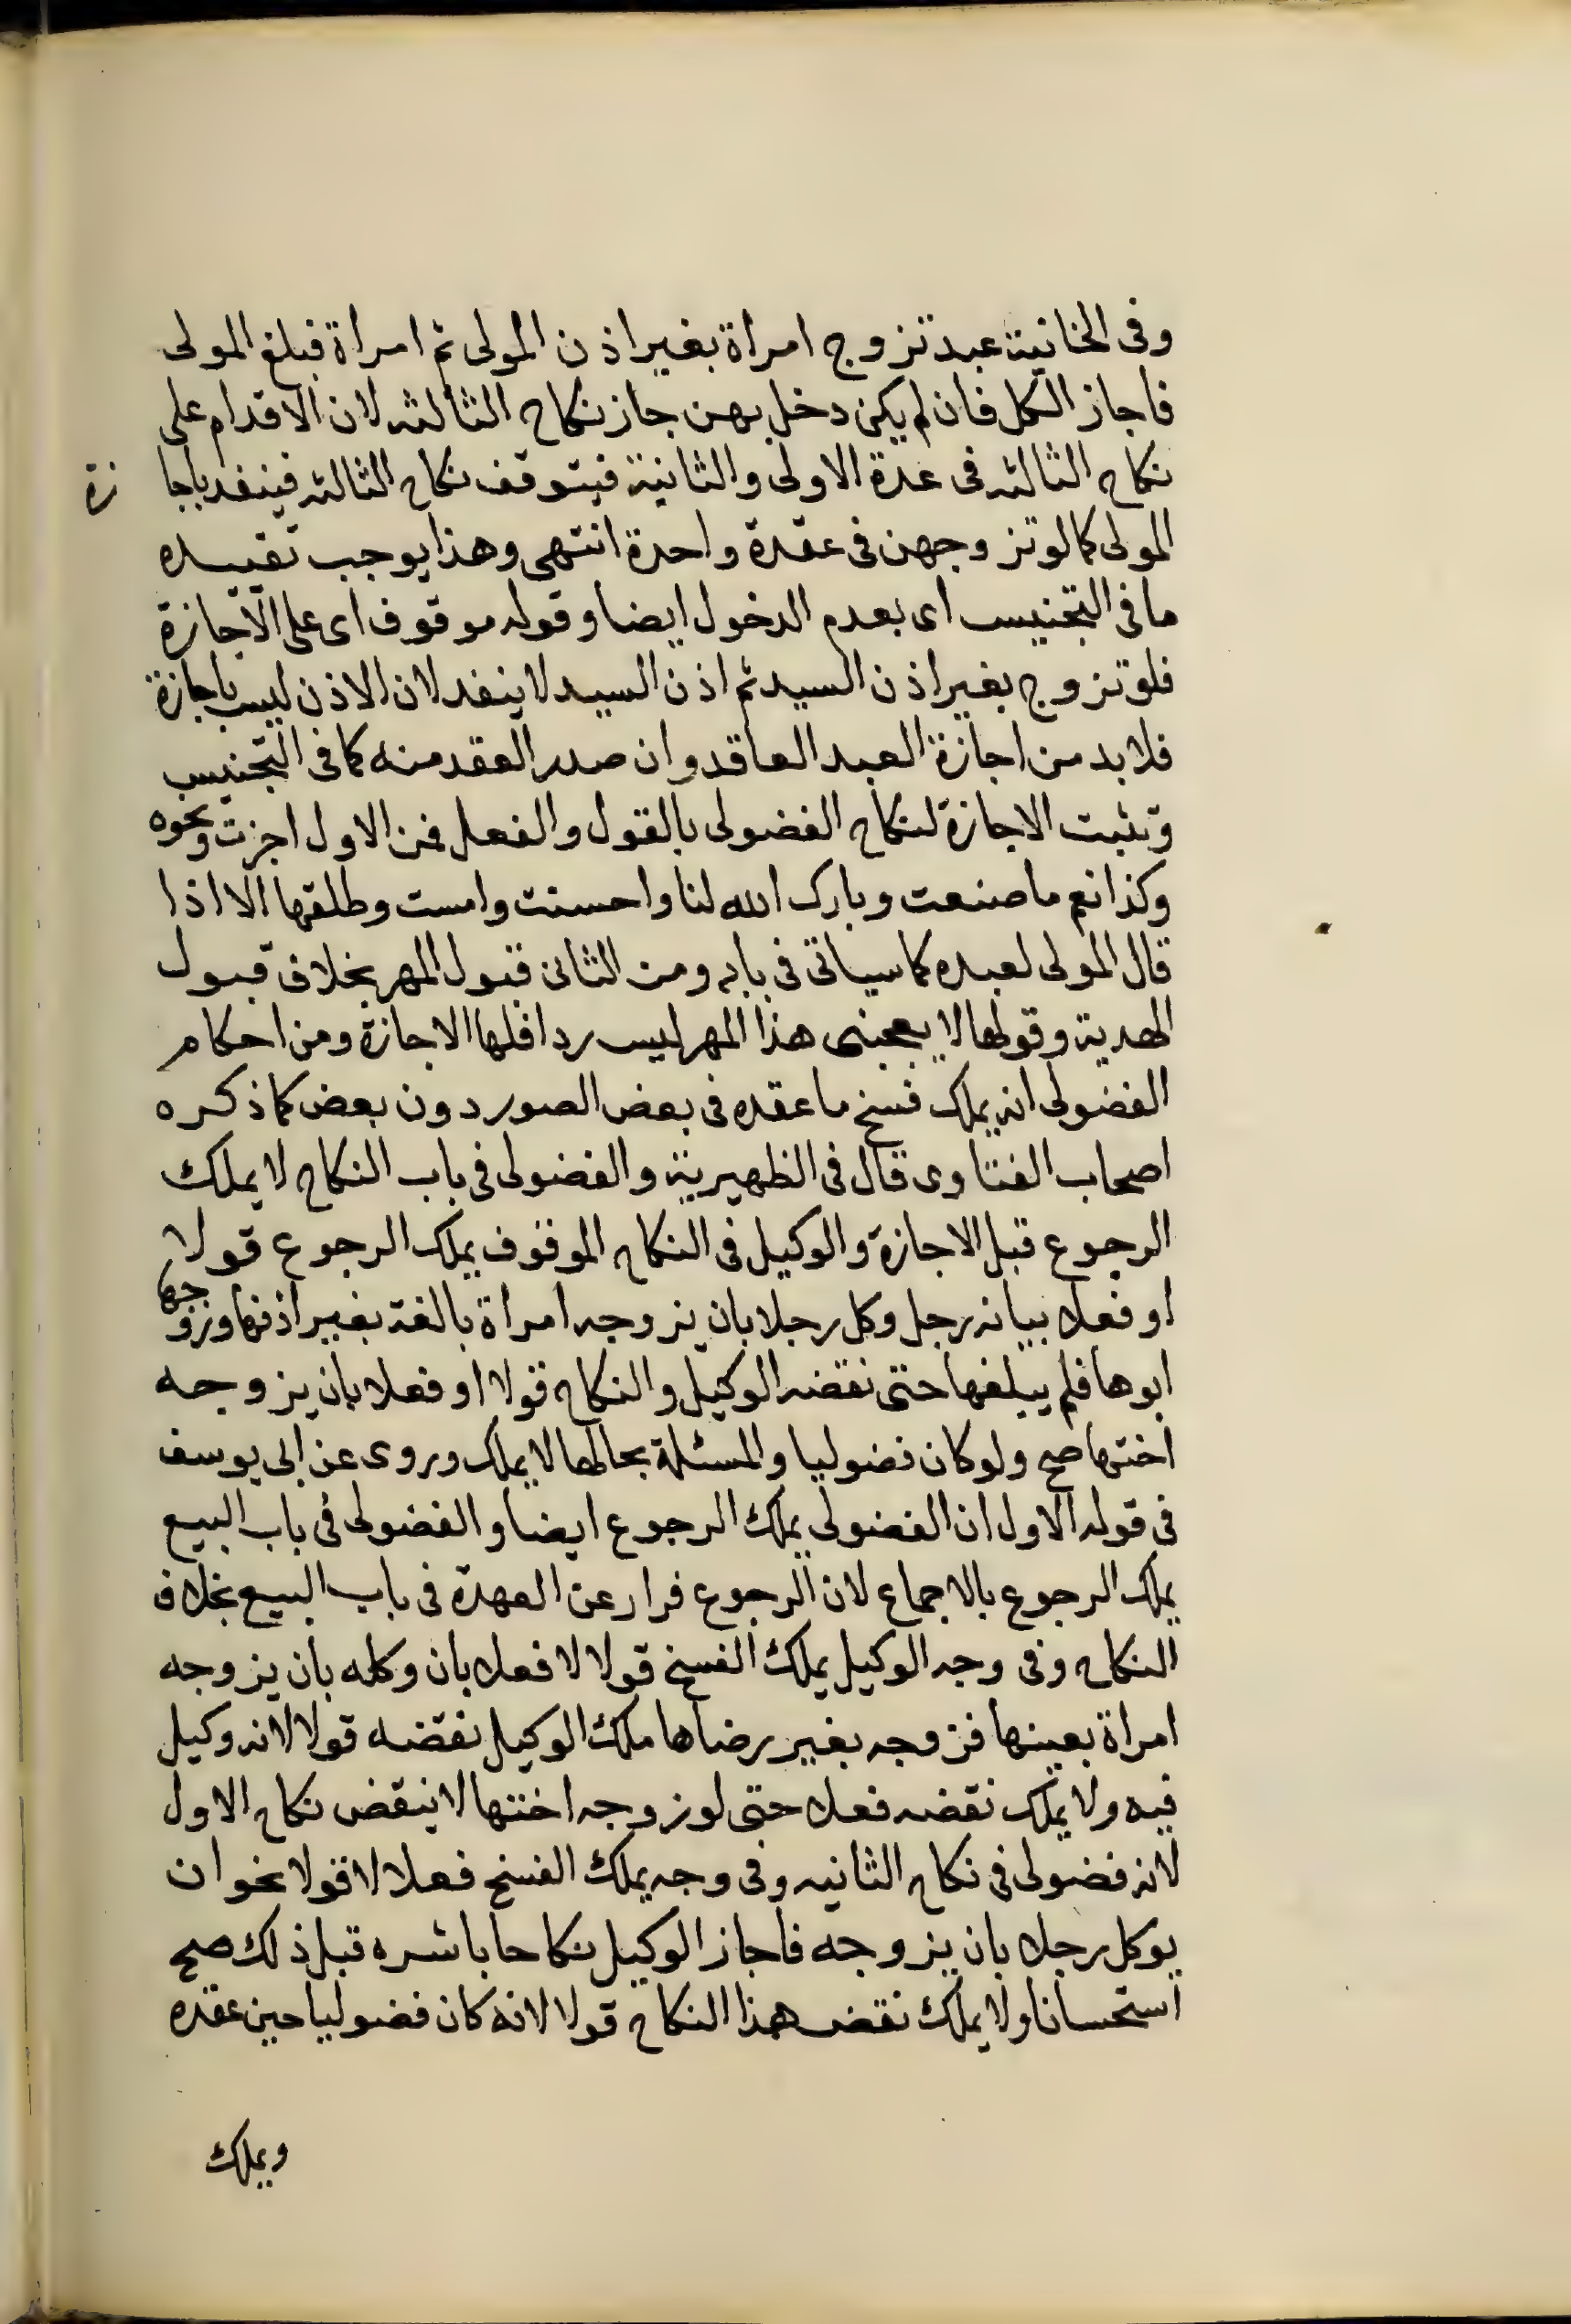 وفى الخانية عبد تزوج امراة بغير اذن المولى ثم امراة فبلغ المولى
فاجاز الكل فان لم يكن دخل بهن جاز نكاح الثالثه لان الاقدام على
نكاح الثالثه فى عدة الاولى والثانية فيتوقف نكاح الثالثه فينفد باجازة
المولى كما لو تزوجهن فى عقدة واحدة انتهى وهذا يوجب تقييده
ما فى التجنيس اى بعدم الدخول ايضا وقوله موقوف اى على الاجازة
فلو تزوج بغير اذن السيد ثم اذن السيد لا ينفد لان الاذن ليس باجازة
فلابد من اجازة العبد العاقد وان صدر العقد منه كما فى التجنيس
وتثبت الاجازة لنكاح الفضولى بالقول والفعل فمن الاول اجزت ونحوه
وكذا نعم ما صنعت وبارك الله لنا واحسنت وامست وطلقها الا اذا
قال المولى لعبده كما سياتى فى بابه ومن الثانى قبول المهر بخلاف قبول
الهدية وقولها لا يعجبنى هذا المهر ليس ردا فلها الاجازة ومن احكام
الفضولى انه يملك فسخ ما عقده فى بعض الصور دون بعض كما ذكره
اصحاب الفتاوى قال فى الظهيرية والفضولى فى باب النكاح لا يملك
الرجوع قبل الاجازة والوكيل فى النكاح الموقوف يملك الرجوع قولا
او فعلا بيانه رجل وكل رجلا بان يزوجه امراة بالغة بغير اذنها وزوجها
ابوها فلم يبلغها حتى نقضه الوكيل والنكاح قولا او فعلا بان يزوجه
اختها صح ولو كان فضوليا والمسئلة بحالها لا يملك وروى عن ابى يوسف
فى قوله الاول ان الفضولى يملك الرجوع ايضا والفضولى فى باب البيع
يملك الرجوع بالاجماع لان الرجوع فرار عن العهدة فى باب البيع بخلاف
النكاح وفى وجه الوكيل يملك الفسخ قولا لا فعلا بان وكله بان يزوجه
امراة بعينها فزوجه بغير رضاها ملك الوكيل نقضه قولا لانه وكيل
فيه ولا يملك نقضه فعلا حتى لو زوجه اختها لا ينقض نكاح الاول
لانه فضولى فى نكاح الثانيه وفى وجه يملك الفسخ فعلا لا قولا نحو ان
يوكل رجلا بان يزوجه فاجاز الوكيل نكاحا باشره قبل ذلك صح
استحسانا ولا يملك نقض هذا النكاح قولا لانه كان فضوليا حين عقده
ويملك